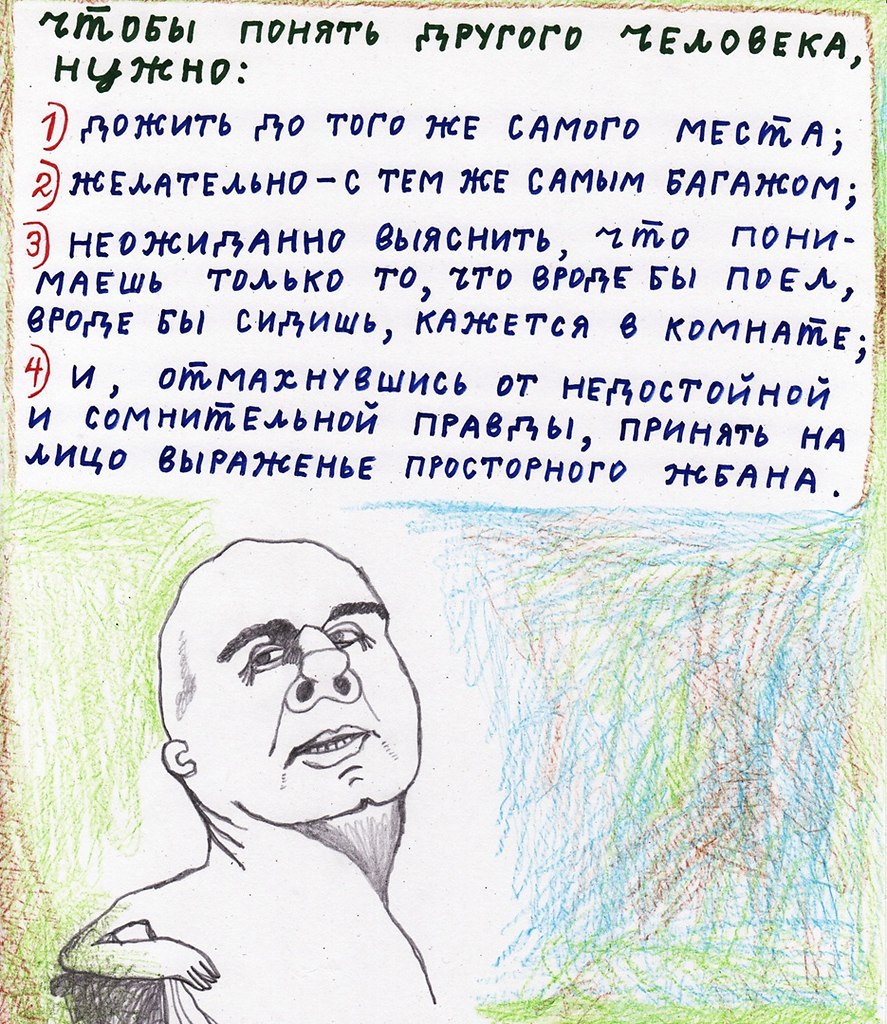 ЧТОБЫ ПОНЯТЬ ДРУГОГО ЧЕЛОВЕКА,
НУЖНО:
1) ДОЖИТЬ ДО ТОГО ЖЕ САМОГО МЕСТА;
2) ЖЕЛАТЕЛЬНО – С ТЕМ ЖЕ САМЫМ БАГАЖОМ;
3) НЕОЖИДАННО ВЫЯСНИТЬ, ЧТО ПОНИ-
МАЕШЬ ТОЛЬКО ТО, ЧТО ВРОДЕ БЫ ПОЕЛ,
ВРОДЕ БЫ СИДИШЬ, КАЖЕТСЯ В КОМНАТЕ;
4) И, ОТМАХНУВШИСЬ ОТ НЕДОСТОЙНОЙ
И СОМНИТЕЛЬНОЙ ПРАВДЫ, ПРИНЯТЬ НА
ЛИЦО ВЫРАЖЕНЬЕ ПРОСТОРНОГО ЖБАНА.